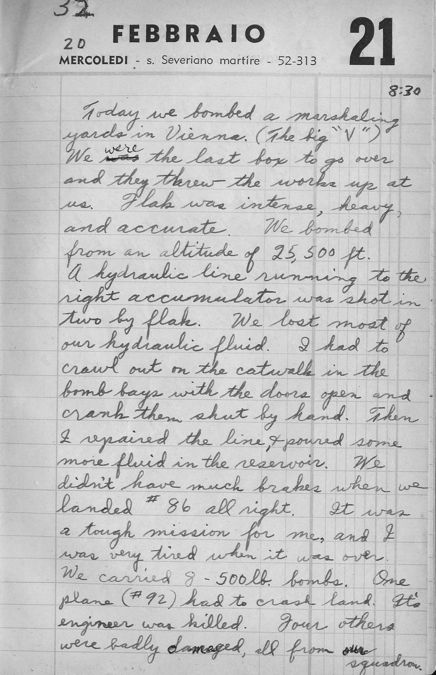 32
20
FEBBRAIO 21
MERCOLEDI - s. Severiano martire - 52-313
8:30
Today we bombed a marshaling
yards in Vienna. (The big "V")
We were the last box to go over
and they threw the works up at
us. Flak was intense, heavy,
and accurate. We bombed
from an altitude of 25,500 ft.
A hydraulic line running to the
right accumulator was shot in
two by flak. We lost most of
our hydraulic fluid. I had to
crawl out on the catwalk in the
bomb bays with the doors open and
crank them shut by hand. Then
I repaired the line & poured some
more fluid in the reservoir. We
didn't have much brakes when we
landed #86 all right. It was
a tough mission for me, and I
was very tired when it was over.
We carried 8 - 500 lb. bombs. One
plane (#92) had to crash land. It's
engineer was killed. Four others
were badly damaged, all from our
squadron.